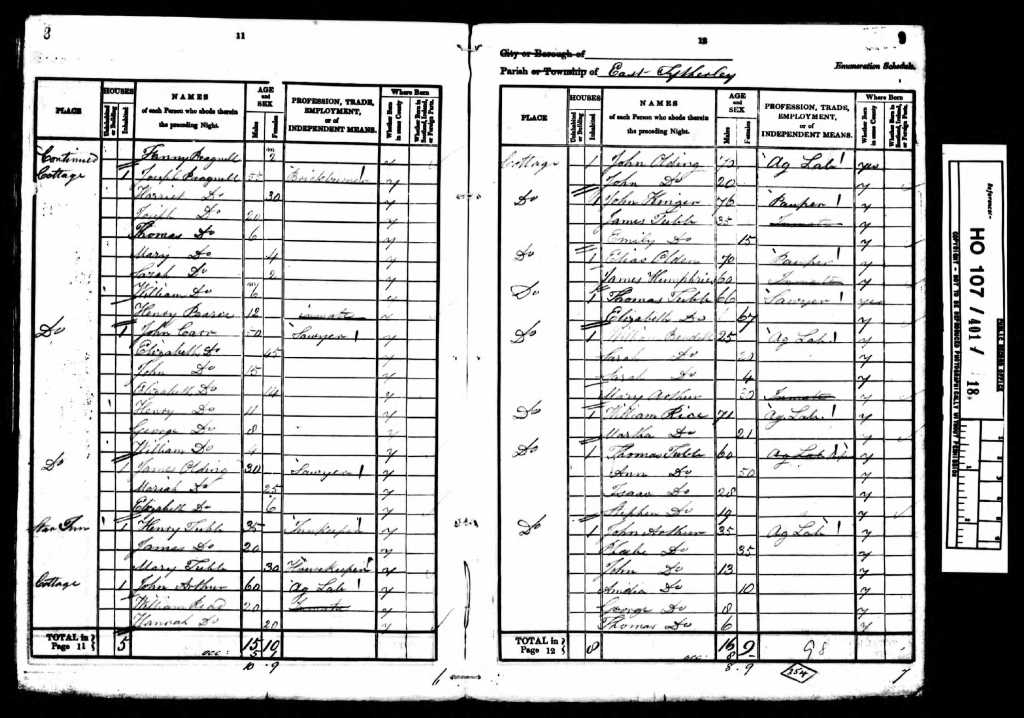 8
11
PLACE
HOUSES
Uninhabited or Building
Inhabited
NAMES
of each Person who abode therein
the preceding Night.
AGE
and
SEX
Males
Females
PROFESSION, TRADE,
EMPLOYMENT,
or of
INDEPENDENT MEANS.
Where Born
Whether Born in same County
Whether Born in Scotland, Ireland, or Foreign Parts.
Continued Fanny Bragnell 2 y
Cottage 1 Joseph Bragnell 55 y
Harriet Do 30 y
Joseph Do 20 y
Thomas Do 6 y
Mary Do 4 y
Sarah Do 2 y
William Do 6 y
Henry Pearce 12 inmate y
Do 1 John Carr 50 Sawyer y
Elizabeth Do 45 y
John Do 15 y
Elizabeth Do 14 y
Henry Do 11 y
George Do 8 y
William Do 4 y
Do 1 James Olding 30 Sawyer y
Mariah Do 25 y
Elizabeth Do 6 y
Inn 1 Henry Tubb 35 Innkeeper y
James Do 20 y
Mary Tubb 30 Housekeeper y
Cottage 1 John Arthur 60 Ag Lab y
William Read 20 Inmate y
Hannah Do 20 y
TOTAL in Page 11 5 15 10
occ: 5
10 9
12
9
City or Borough of
Parish or Township of East Tytherley
Enumeration Schedule.
PLACE
HOUSES
Uninhabited or Building
Inhabited
NAMES
of each Person who abode therein
the preceding Night.
AGE
and
SEX
Males
Females
PROFESSION, TRADE,
EMPLOYMENT,
or of
INDEPENDENT MEANS.
Where Born
Whether Born in same County
Whether Born in Scotland, Ireland, or Foreign Parts.
Cottage 1 John Olding Ag Lab yes
John Do 20 y
Do 1 John Hinger 76 Pauper y
James Tubb 35 Inmate y
Emily Do 15 y
Do 1 Elias 70 Pauper y
James Humphries 60 Inmate y
Do 1 Thomas Tubb 66 Sawyer yes
Elizabeth Do 67 y
Do 1 25 Ag Lab y
Sarah Do y
Sarah Do 4 y
Mary Arthur Inmate y
Do 1 William Rice 71 Ag Lab y
Martha Do 21 y
Do 1 Thomas Tubb 60 Ag Lab y
Ann Do 50 y
Isaac Do 28 y
Stephen Do 19 y
Do 1 John Arthur 35 Ag Lab y
Phoebe Do 35 y
John Do 13 y
Do 10 y
George Do 8 y
Thomas Do 6 y
TOTAL in Page 12 8 16 9 98
occ: 8
8 9
254
7
Reference:-
HO 107/401/18.
PUBLIC RECORD OFFICE
COPYRIGHT - NOT TO BE REPRODUCED PHOTOGRAPHICALLY WITHOUT PERMISSION